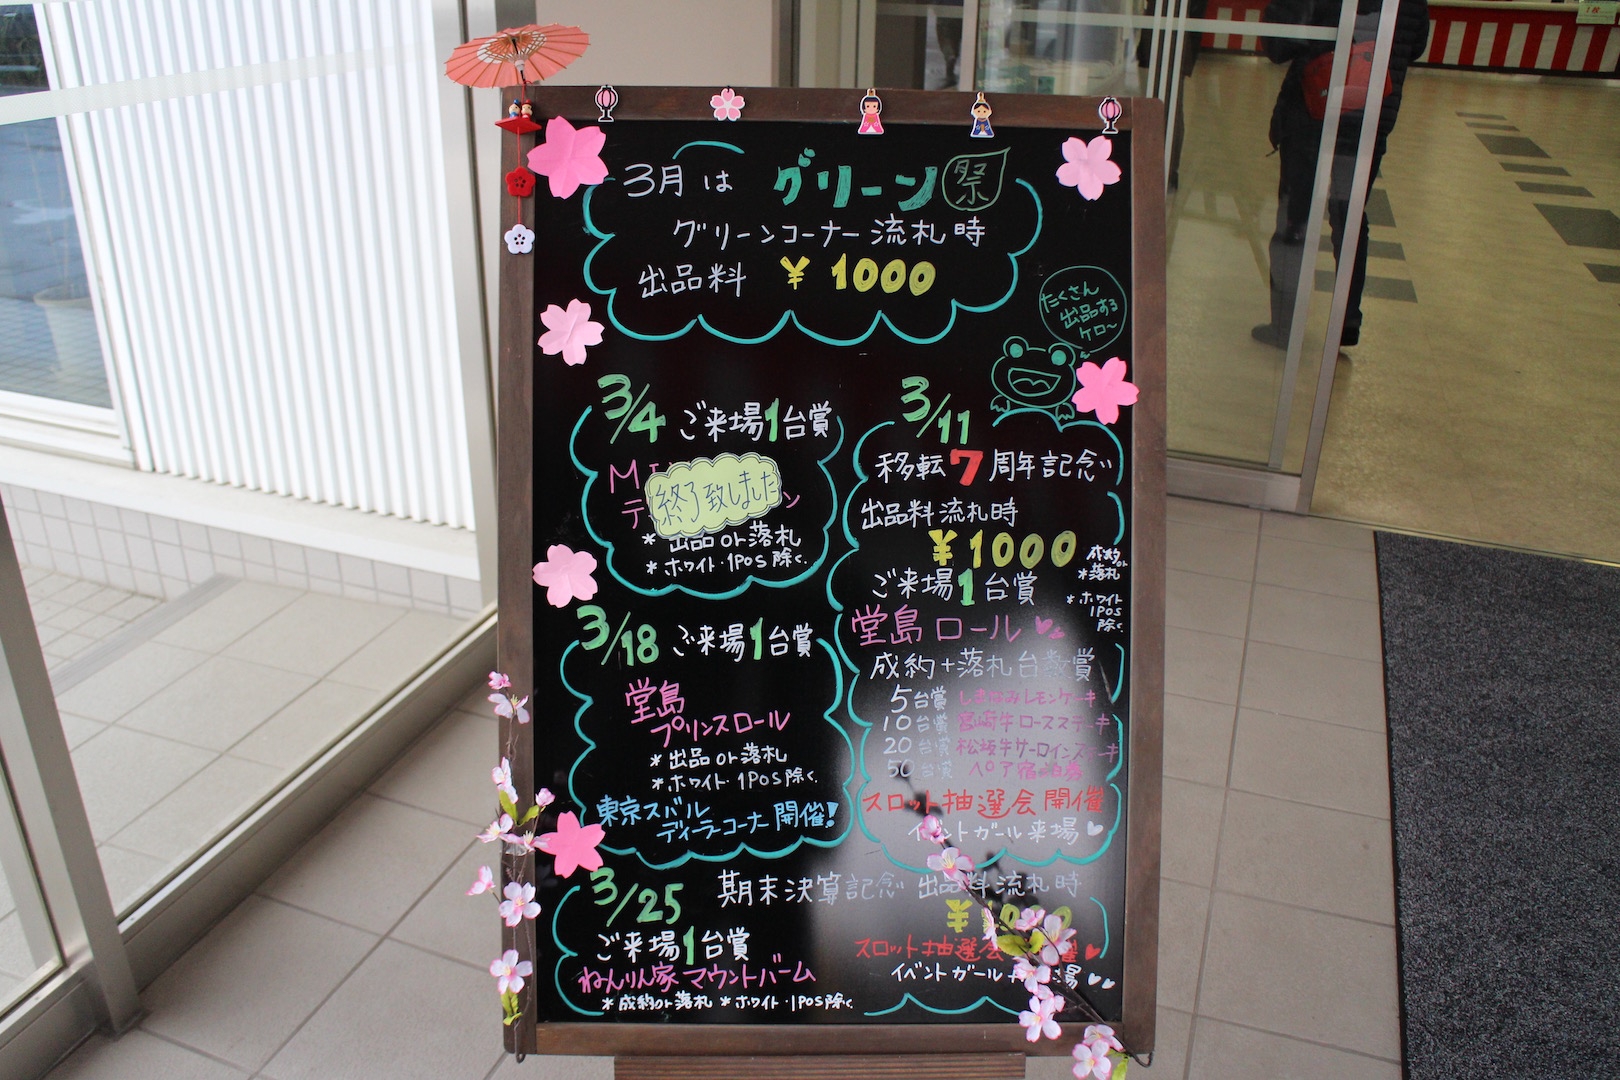 3月は グリーン祭
グリーンコーナー流札時
出品料 ¥1000
たくさん
出品する
ケロ〜
3/4 ご来場1台賞
終了致しました
*出品or落札
*ホワイト・1POS除く.
3/11
移転7周年記念
出品料流札時
¥1000
ご来場1台賞
成約or
*落札
*ホワイト
1POS
除く.
堂島ロール
成約+落札台数賞
5台賞 しまなみレモンケーキ
10台賞 宮崎牛ロースステーキ
20台賞 松坂牛サーロインステーキ
50台賞 ペア宿泊券
スロット抽選会開催
イベントガール来場
3/18 ご来場1台賞
堂島
プリンスロール
*出品or落札
*ホワイト・1POS除く.
東京スバル
ディーラーコーナー開催!
3/25 期末決算記念 出品料流札時
ご来場1台賞
ねんりん家マウントバーム
*成約or落札 *ホワイト・1POS除く
スロット抽選会
イベントガール